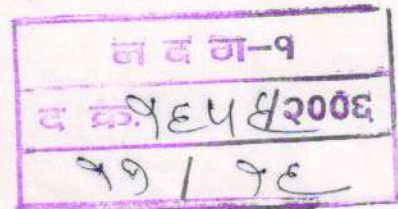 न द ग-१
द क्र. १६५४/२००६
११ / १६